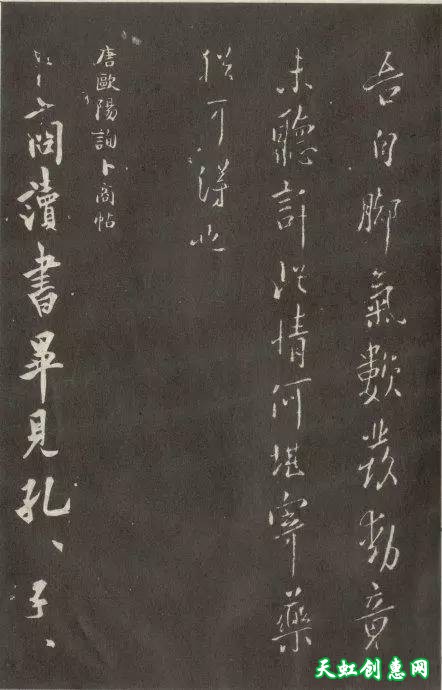 吾自腳氣數發動竟
未聽許此情何堪寄藥
猶可得也
唐歐陽詢卜商帖
卜商讀書畢見孔、子、
天虹创惠网